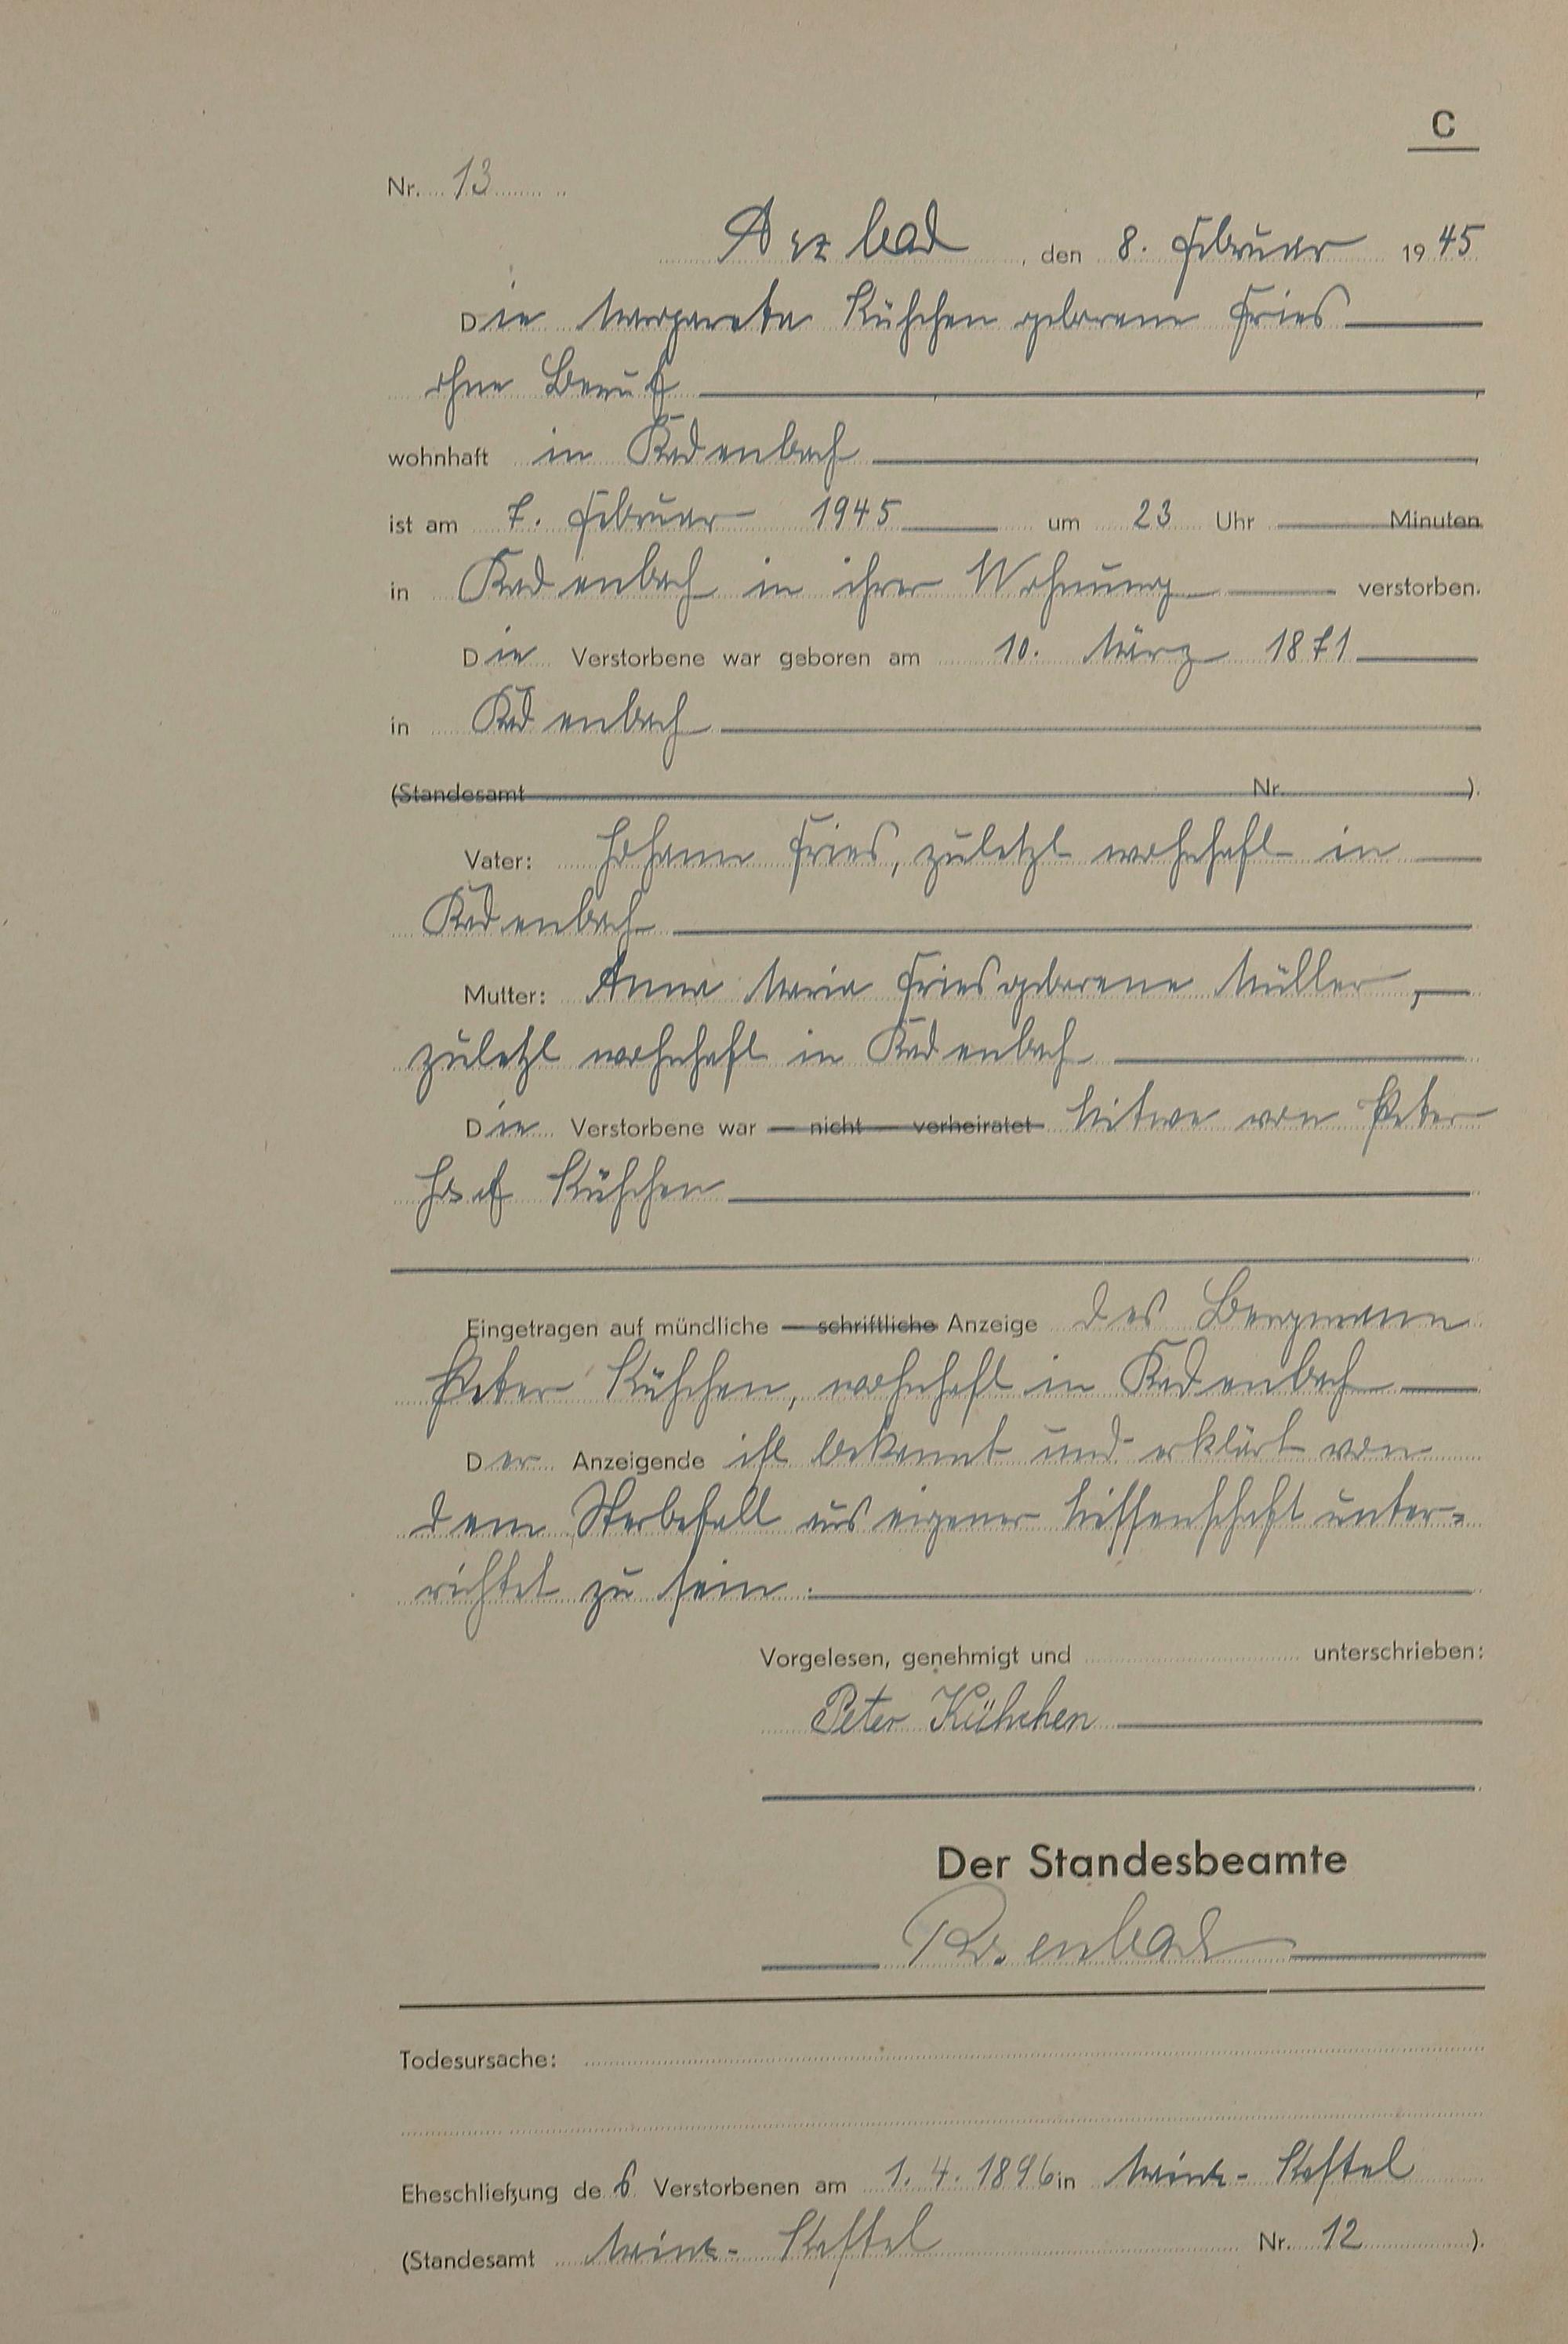 C
Nr. 13
Arzbach, den 8. Februar 1945
Die Margareta Kühchen geborene Fries
ohne Beruf
wohnhaft in Kadenbach
ist am 7. Februar 1945 um 23 Uhr Minuten
in Kadenbach in ihrer Wohnung verstorben.
Die Verstorbene war geboren am 10. März 1871
in Kadenbach
(Standesamt Nr. ).
Vater: Johann Fries, zuletzt wohnhaft in
Kadenbach
Mutter: Anna Maria Fries geborene Müller,
zuletzt wohnhaft in Kadenbach
Die Verstorbene war — nicht — verheiratet Witwe von Peter
Josef Kühchen
Eingetragen auf mündliche — schriftliche Anzeige des Bergmann
Peter Kühchen, wohnhaft in Kadenbach
Der Anzeigende ist bekannt und erklärt von
dem Sterbefall aus eigener Wissenschaft unter=
richtet zu sein.
Vorgelesen, genehmigt und unterschrieben:
Peter Kühchen
Der Standesbeamte
Todesursache:
Eheschließung des Verstorbenen am 1.4.1896 in Mainz-Kastel
(Standesamt Mainz-Kastel Nr. 12 ).